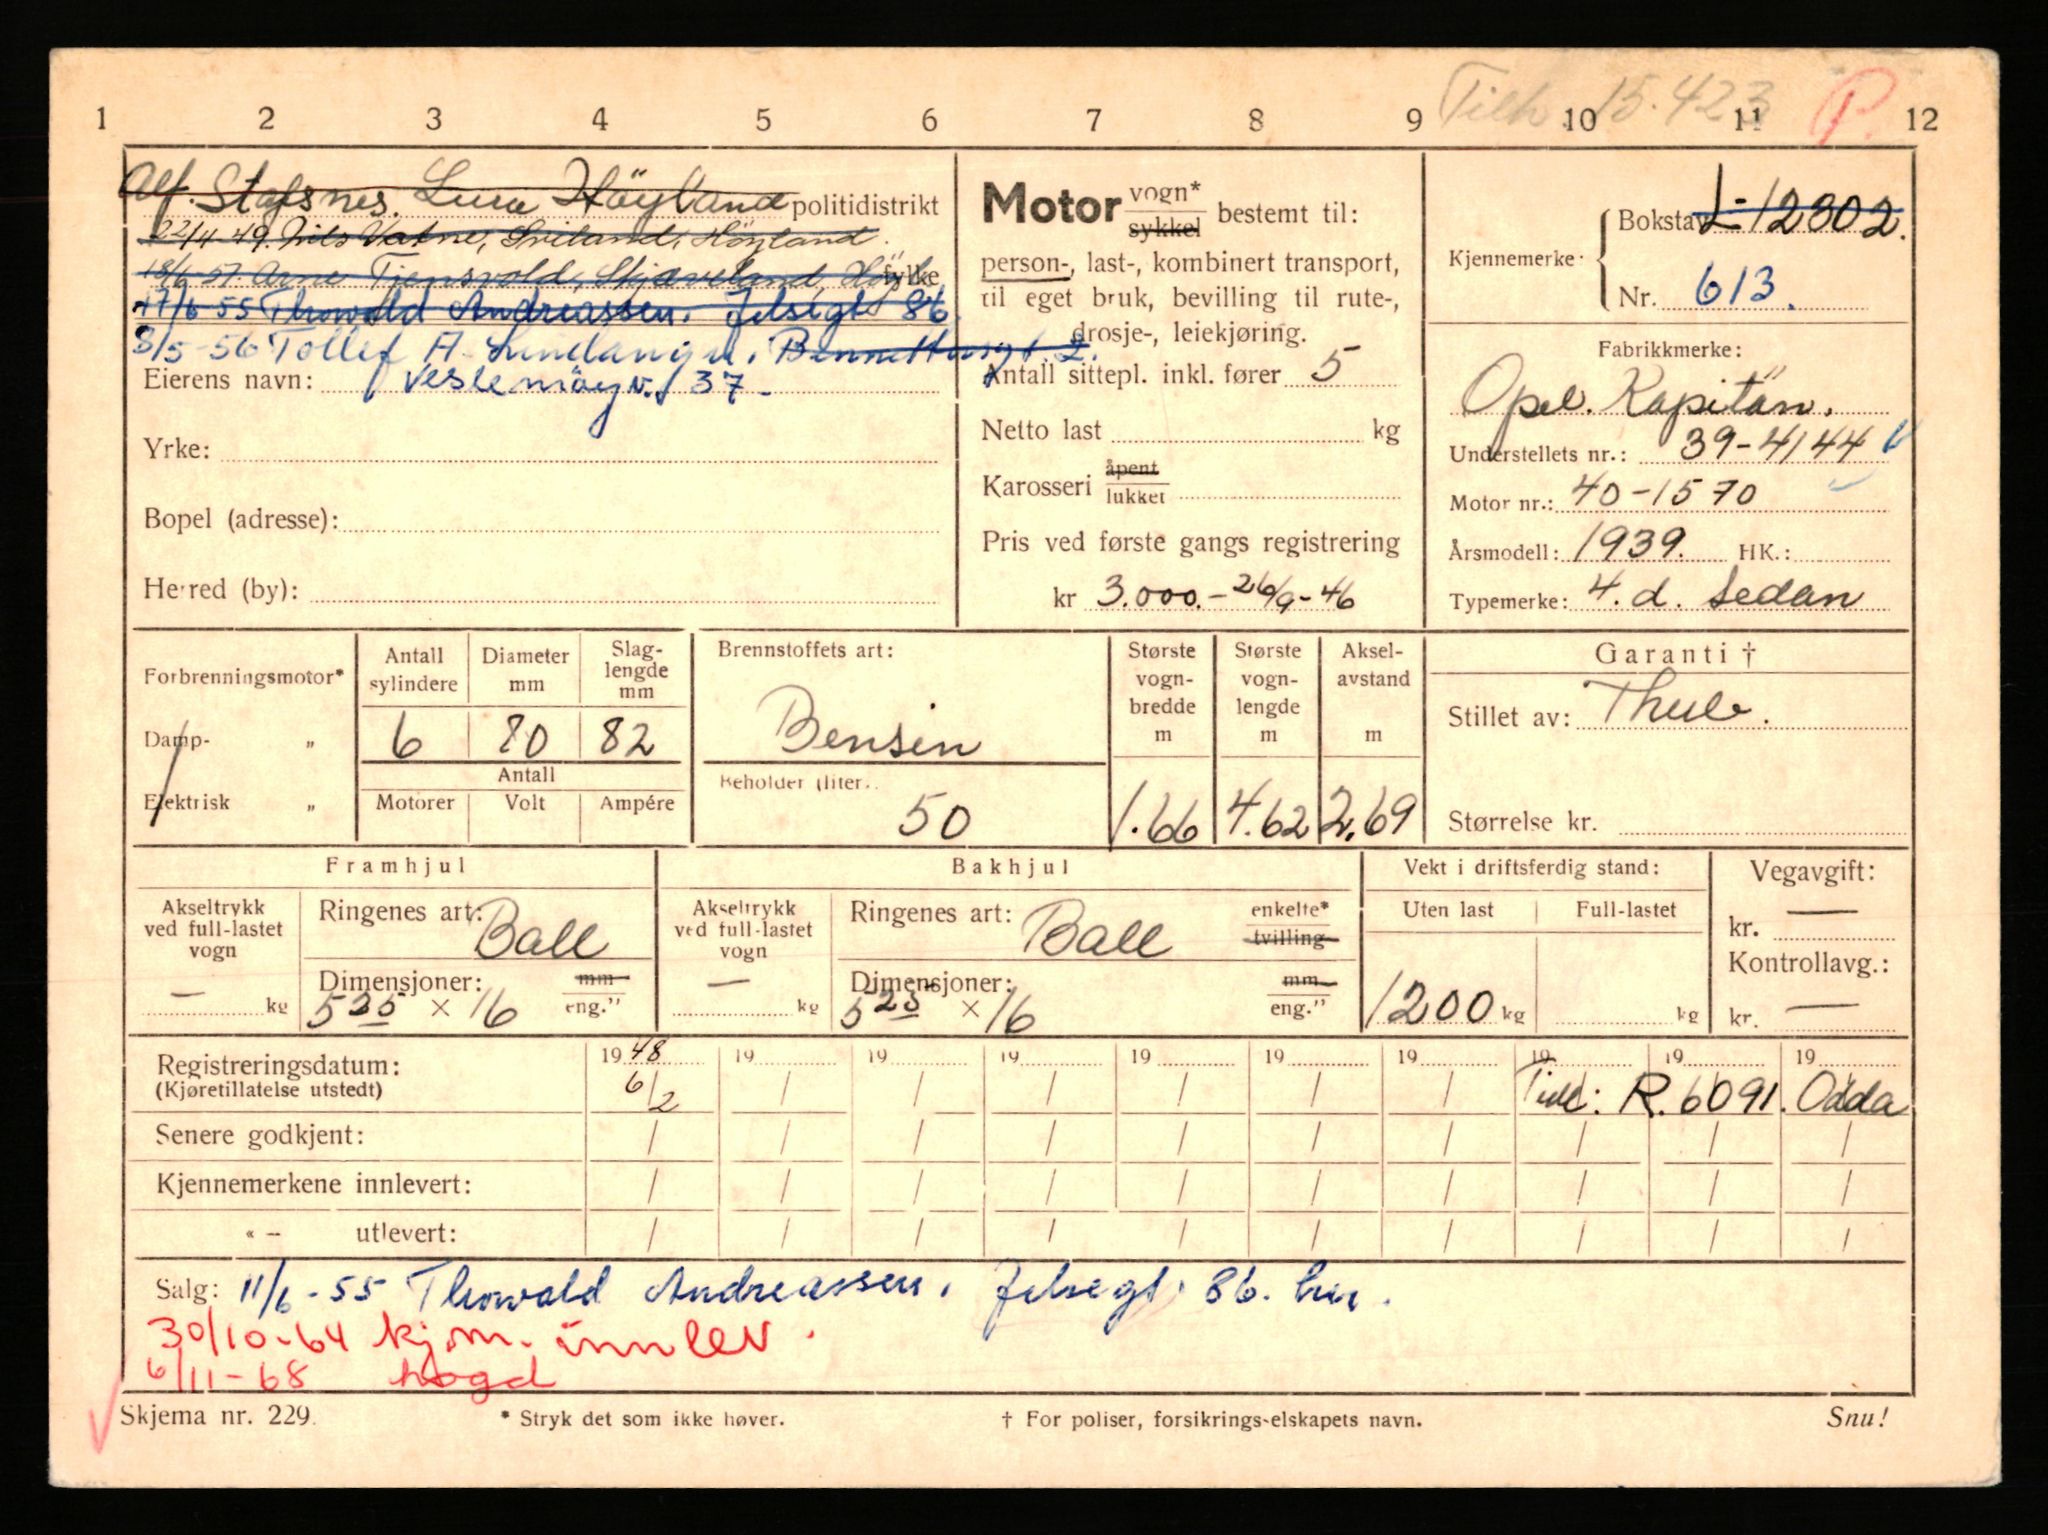 Tilh. 15.423 P.
1 2 3 4 5 6 7 8 9 10 11 12
Alf. Stafsnes. Lura Höyland politidistrikt
22/4-49. Nils Vatne, Sviland, Höyland.
18/6-51. Arne Tjensvold, Skjæveland, Höyl. fylke
17/6 55 Thorvald Andreassen. Jelsegt 86.
8/5-56 Tollef A.
Eierens navn: Veslemöyv. 37.
Yrke:
Bopel (adresse):
Herred (by):
Motor vogn* sykkel bestemt til:
person-, last-, kombinert transport,
til eget bruk, bevilling til rute-,
drosje-, leiekjøring.
Antall sittepl. inkl. fører 5
Netto last kg
Karosseri åpent lukket
Pris ved første gangs registrering
kr 3.000.- 26/9-46
Kjennemerke: Bokstav L-12302.
Nr. 613.
Fabrikkmerke:
Opel. Kapitän.
Understellets nr.: 39-4144
Motor nr.: 40-1570
Årsmodell: 1939. HK.:
Typemerke: 4.d. Sedan
Forbrenningsmotor*
Damp- "
Elektrisk "
Antall sylindere Diameter mm Slag-lengde mm
6 80 82
Antall
Motorer Volt Ampére
Brennstoffets art:
Bensin
Beholder (liter):
50
Største vogn-bredde m Største vogn-lengde m Aksel-avstand m
1.66 4.62 2.69
Garanti †
Stillet av: Thule.
Størrelse kr.
Framhjul
Akseltrykk ved full-lastet vogn
— kg
Ringenes art: Ball
Dimensjoner: mm
525 × 16 eng."
Bakhjul
Akseltrykk ved full-lastet vogn
— kg
Ringenes art: Ball enkelte* tvilling
Dimensjoner: mm
525 × 16 eng."
Vekt i driftsferdig stand:
Uten last Full-lastet
1200 kg kg
Vegavgift:
kr. —
Kontrollavg.:
kr. —
Registreringsdatum: 1948 19 19 19 19 19 19 19 19 19
(Kjøretillatelse utstedt) 6/2 / / / / / / R.6091. Odda
Senere godkjent: / / / / / / / / / /
Kjennemerkene innlevert: / / / / / / / / / /
« – utlevert: / / / / / / / / / /
Salg: 11/6-55 Thorvald Andreassen. Jelsegt. 86. her.
30/10-64 kjm. innlev.
6/11-68 hogd
Skjema nr. 229. * Stryk det som ikke høver. † For poliser, forsikrings-elskapets navn. Snu!